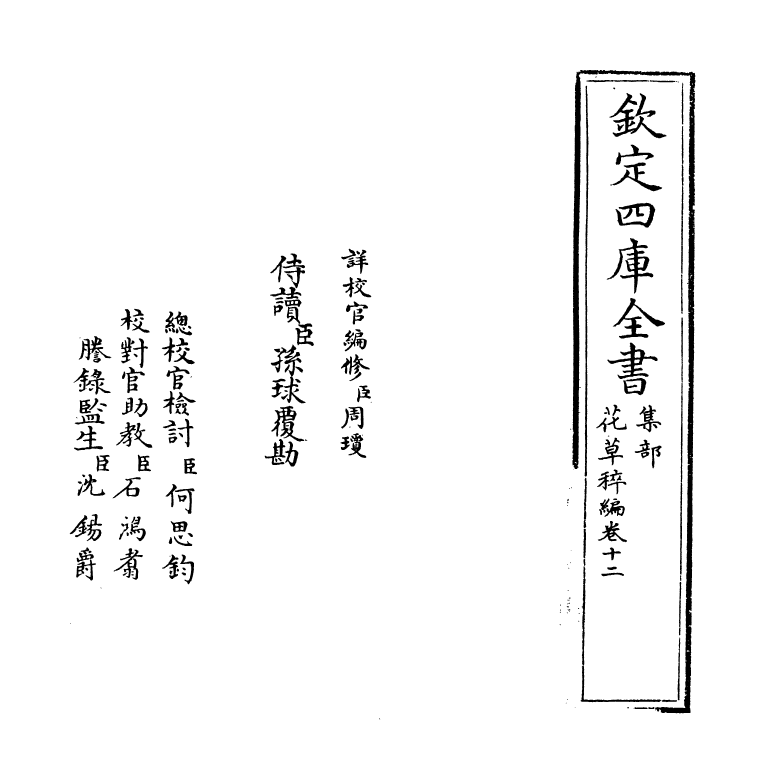 欽定四庫全書
集部
花草稡編卷十二
詳校官編修臣周瓊
侍讀臣孫球覆勘
總校官檢討臣何思鈞
校對官助教臣石鴻翥
謄錄監生臣沈錫爵